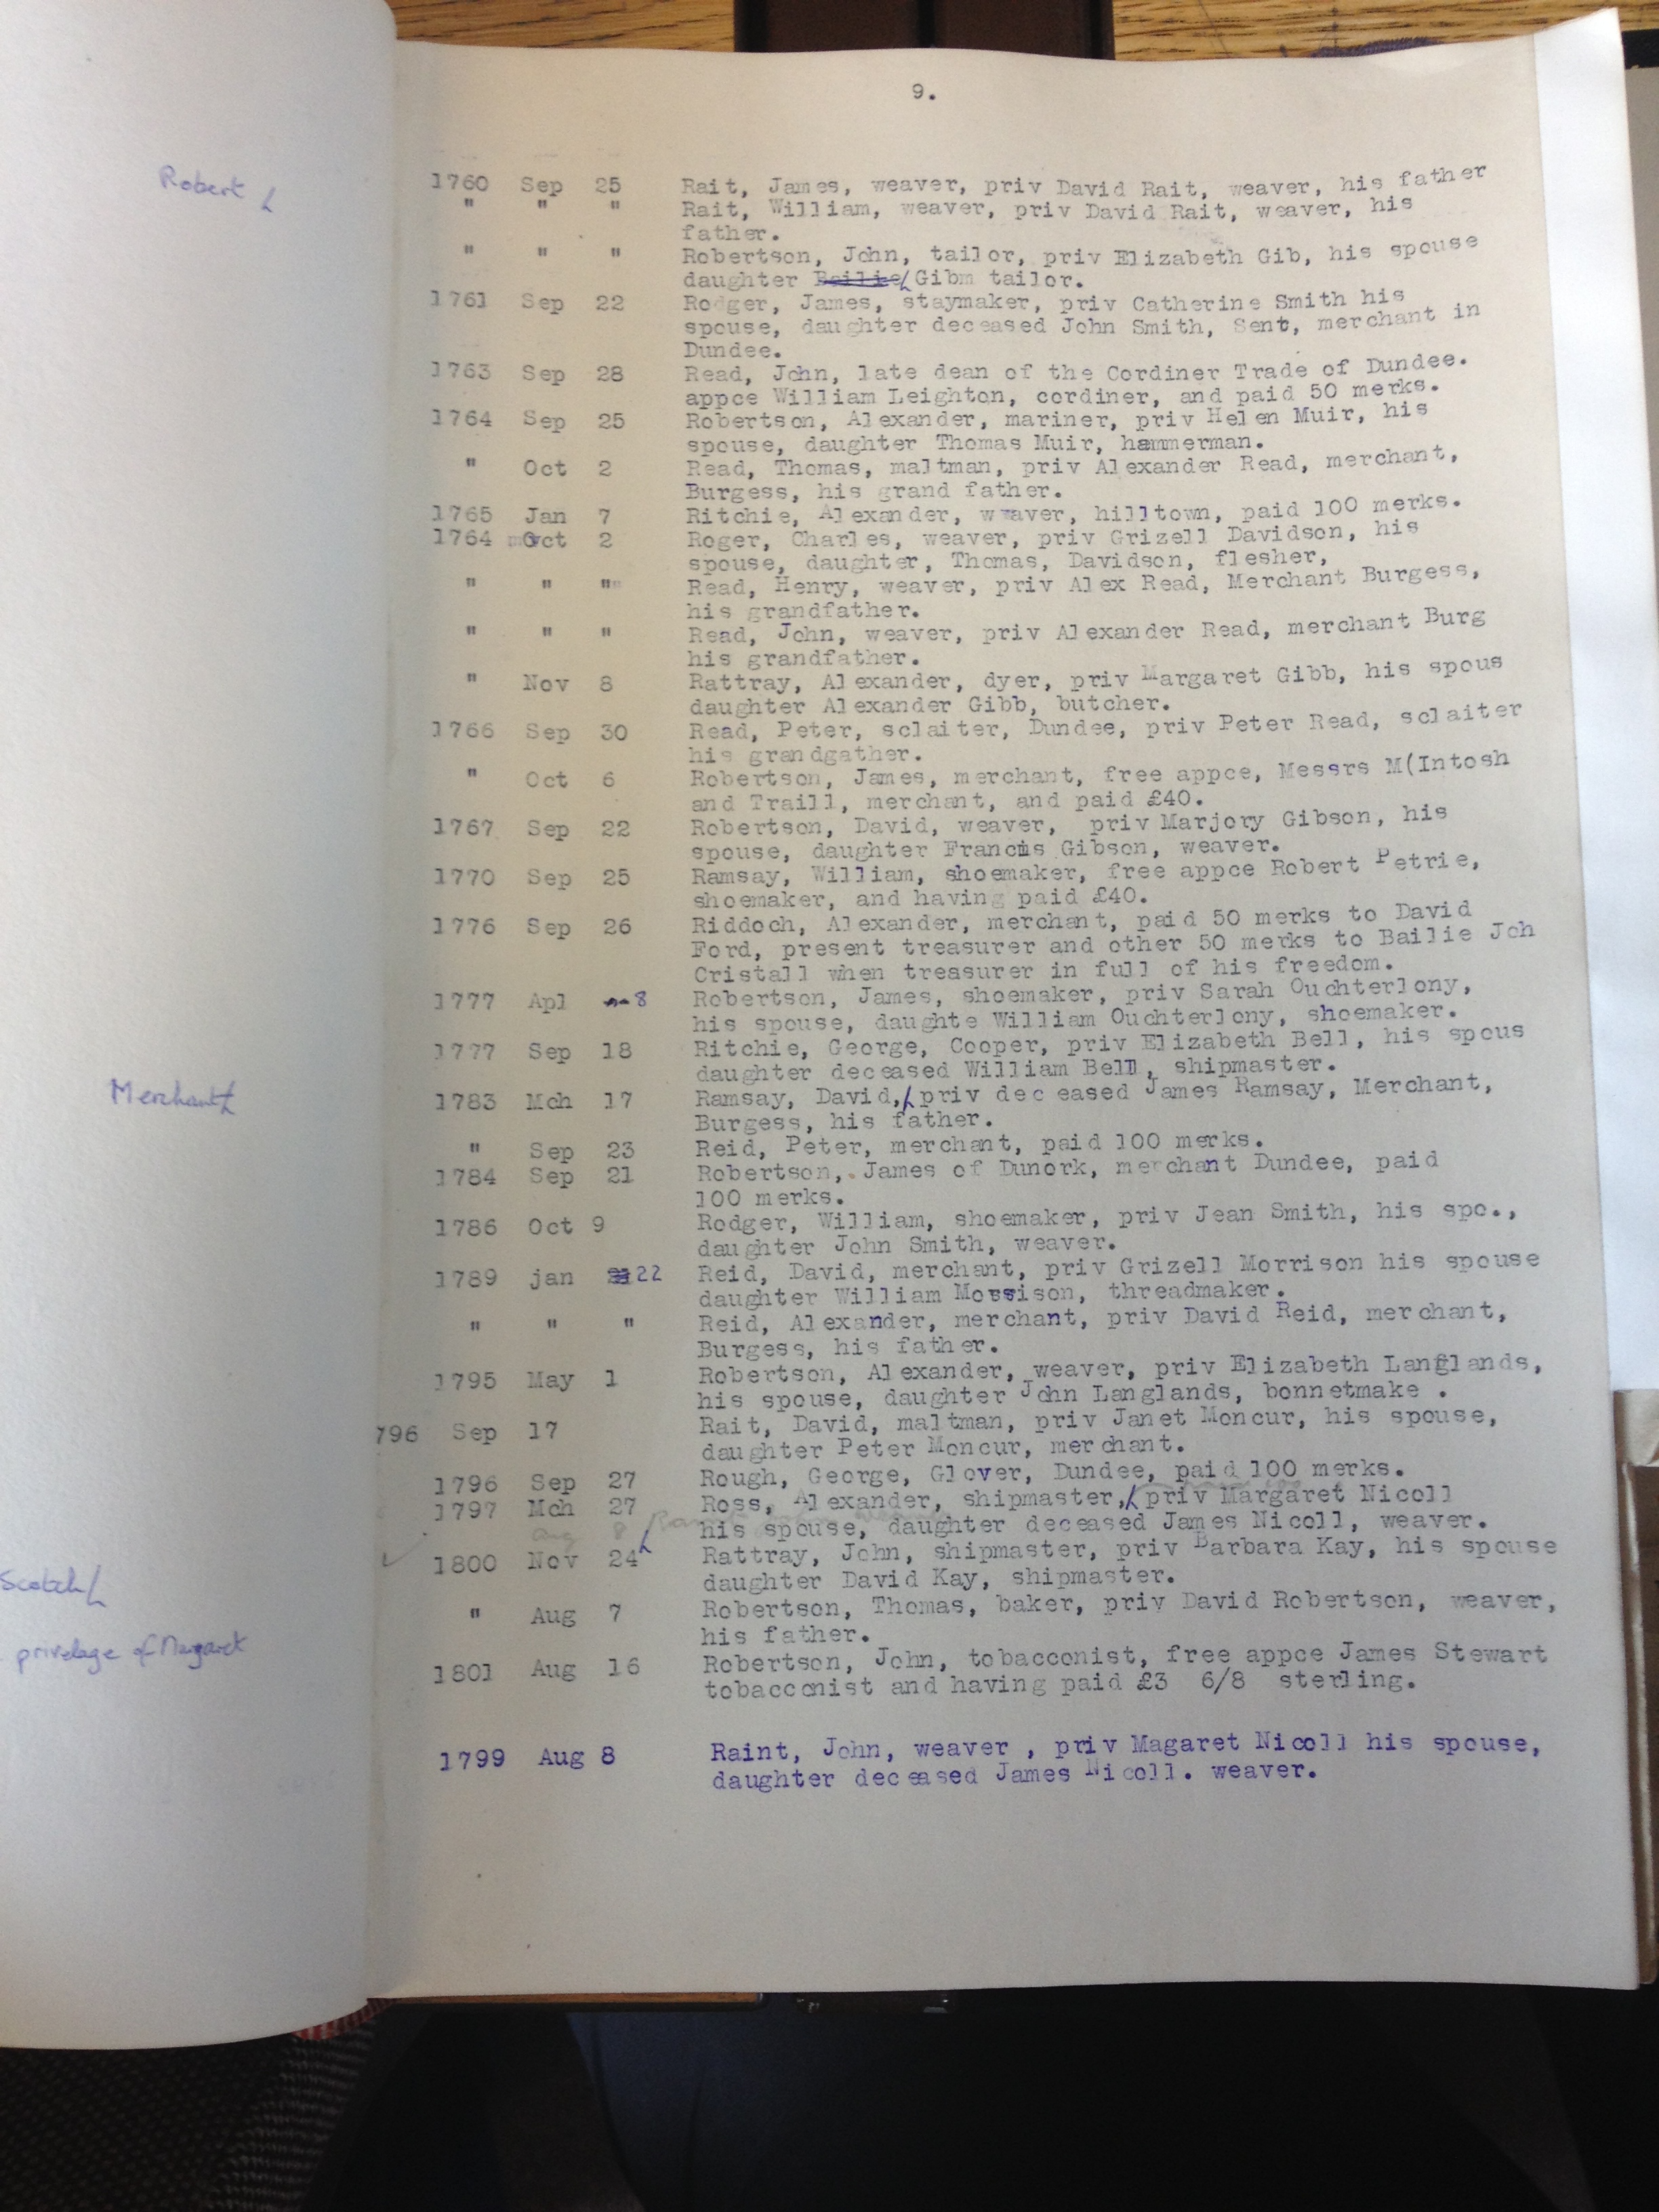 9.
Robert
1760 Sep 25 Rait, James, weaver, priv David Rait, weaver, his father
" " " Rait, William, weaver, priv David Rait, weaver, his
father.
" " " Robertson, John, tailor, priv Elizabeth Gib, his spouse
daughter Bailie Gibm tailor.
1761 Sep 22 Rodger, James, staymaker, priv Catherine Smith his
spouse, daughter deceased John Smith, Sent, merchant in
Dundee.
1763 Sep 28 Read, John, late dean of the Cordiner Trade of Dundee.
appce William Leighton, cordiner, and paid 50 merks.
1764 Sep 25 Robertson, Alexander, mariner, priv Helen Muir, his
spouse, daughter Thomas Muir, hammerman.
" Oct 2 Read, Thomas, maltman, priv Alexander Read, merchant,
Burgess, his grand father.
1765 Jan 7 Ritchie, Alexander, weaver, hilltown, paid 100 merks.
1764 Oct 2 Roger, Charles, weaver, priv Grizell Davidson, his
spouse, daughter, Thomas, Davidson, flesher,
" " " Read, Henry, weaver, priv Alex Read, Merchant Burgess,
his grandfather.
" " " Read, John, weaver, priv Alexander Read, merchant Burg
his grandfather.
" Nov 8 Rattray, Alexander, dyer, priv Margaret Gibb, his spous
daughter Alexander Gibb, butcher.
1766 Sep 30 Read, Peter, sclaiter, Dundee, priv Peter Read, sclaiter
his grandgather.
" Oct 6 Robertson, James, merchant, free appce, Messrs M(Intosh
and Traill, merchant, and paid £40.
1767 Sep 22 Robertson, David, weaver, priv Marjory Gibson, his
spouse, daughter Francis Gibson, weaver.
1770 Sep 25 Ramsay, William, shoemaker, free appce Robert Petrie,
shoemaker, and having paid £40.
1776 Sep 26 Riddoch, Alexander, merchant, paid 50 merks to David
Ford, present treasurer and other 50 merks to Bailie Joh
Cristall when treasurer in full of his freedom.
1777 Apl 8 Robertson, James, shoemaker, priv Sarah Ouchterlony,
his spouse, daughte William Ouchterlony, shoemaker.
1777 Sep 18 Ritchie, George, Cooper, priv Elizabeth Bell, his spous
daughter deceased William Bell, shipmaster.
Merchant
1783 Mch 17 Ramsay, David, priv deceased James Ramsay, Merchant,
Burgess, his father.
" Sep 23 Reid, Peter, merchant, paid 100 merks.
1784 Sep 21 Robertson, James of Dunork, merchant Dundee, paid
100 merks.
1786 Oct 9 Rodger, William, shoemaker, priv Jean Smith, his spo.,
daughter John Smith, weaver.
1789 jan 22 Reid, David, merchant, priv Grizell Morrison his spouse
daughter William Morrison, threadmaker.
" " " Reid, Alexander, merchant, priv David Reid, merchant,
Burgess, his father.
1795 May 1 Robertson, Alexander, weaver, priv Elizabeth Langlands,
his spouse, daughter John Langlands, bonnetmake .
796 Sep 17 Rait, David, maltman, priv Janet Moncur, his spouse,
daughter Peter Moncur, merchant.
1796 Sep 27 Rough, George, Glover, Dundee, paid 100 merks.
1797 Mch 27 Ross, Alexander, shipmaster, priv Margaret Nicoll
his spouse, daughter deceased James Nicoll, weaver.
aug 8
1800 Nov 24 Rattray, John, shipmaster, priv Barbara Kay, his spouse
daughter David Kay, shipmaster.
Scotch
" Aug 7 Robertson, Thomas, baker, priv David Robertson, weaver,
his father.
privelage of Margaret
1801 Aug 16 Robertson, John, tobacconist, free appce James Stewart
tobacconist and having paid £3 6/8 sterling.
1799 Aug 8 Raint, John, weaver , priv Magaret Nicoll his spouse,
daughter deceased James Nicoll. weaver.